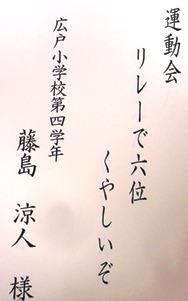 運動会
リレーで六位
くやしいぞ
広戸小学校第四学年
藤島 涼人 様